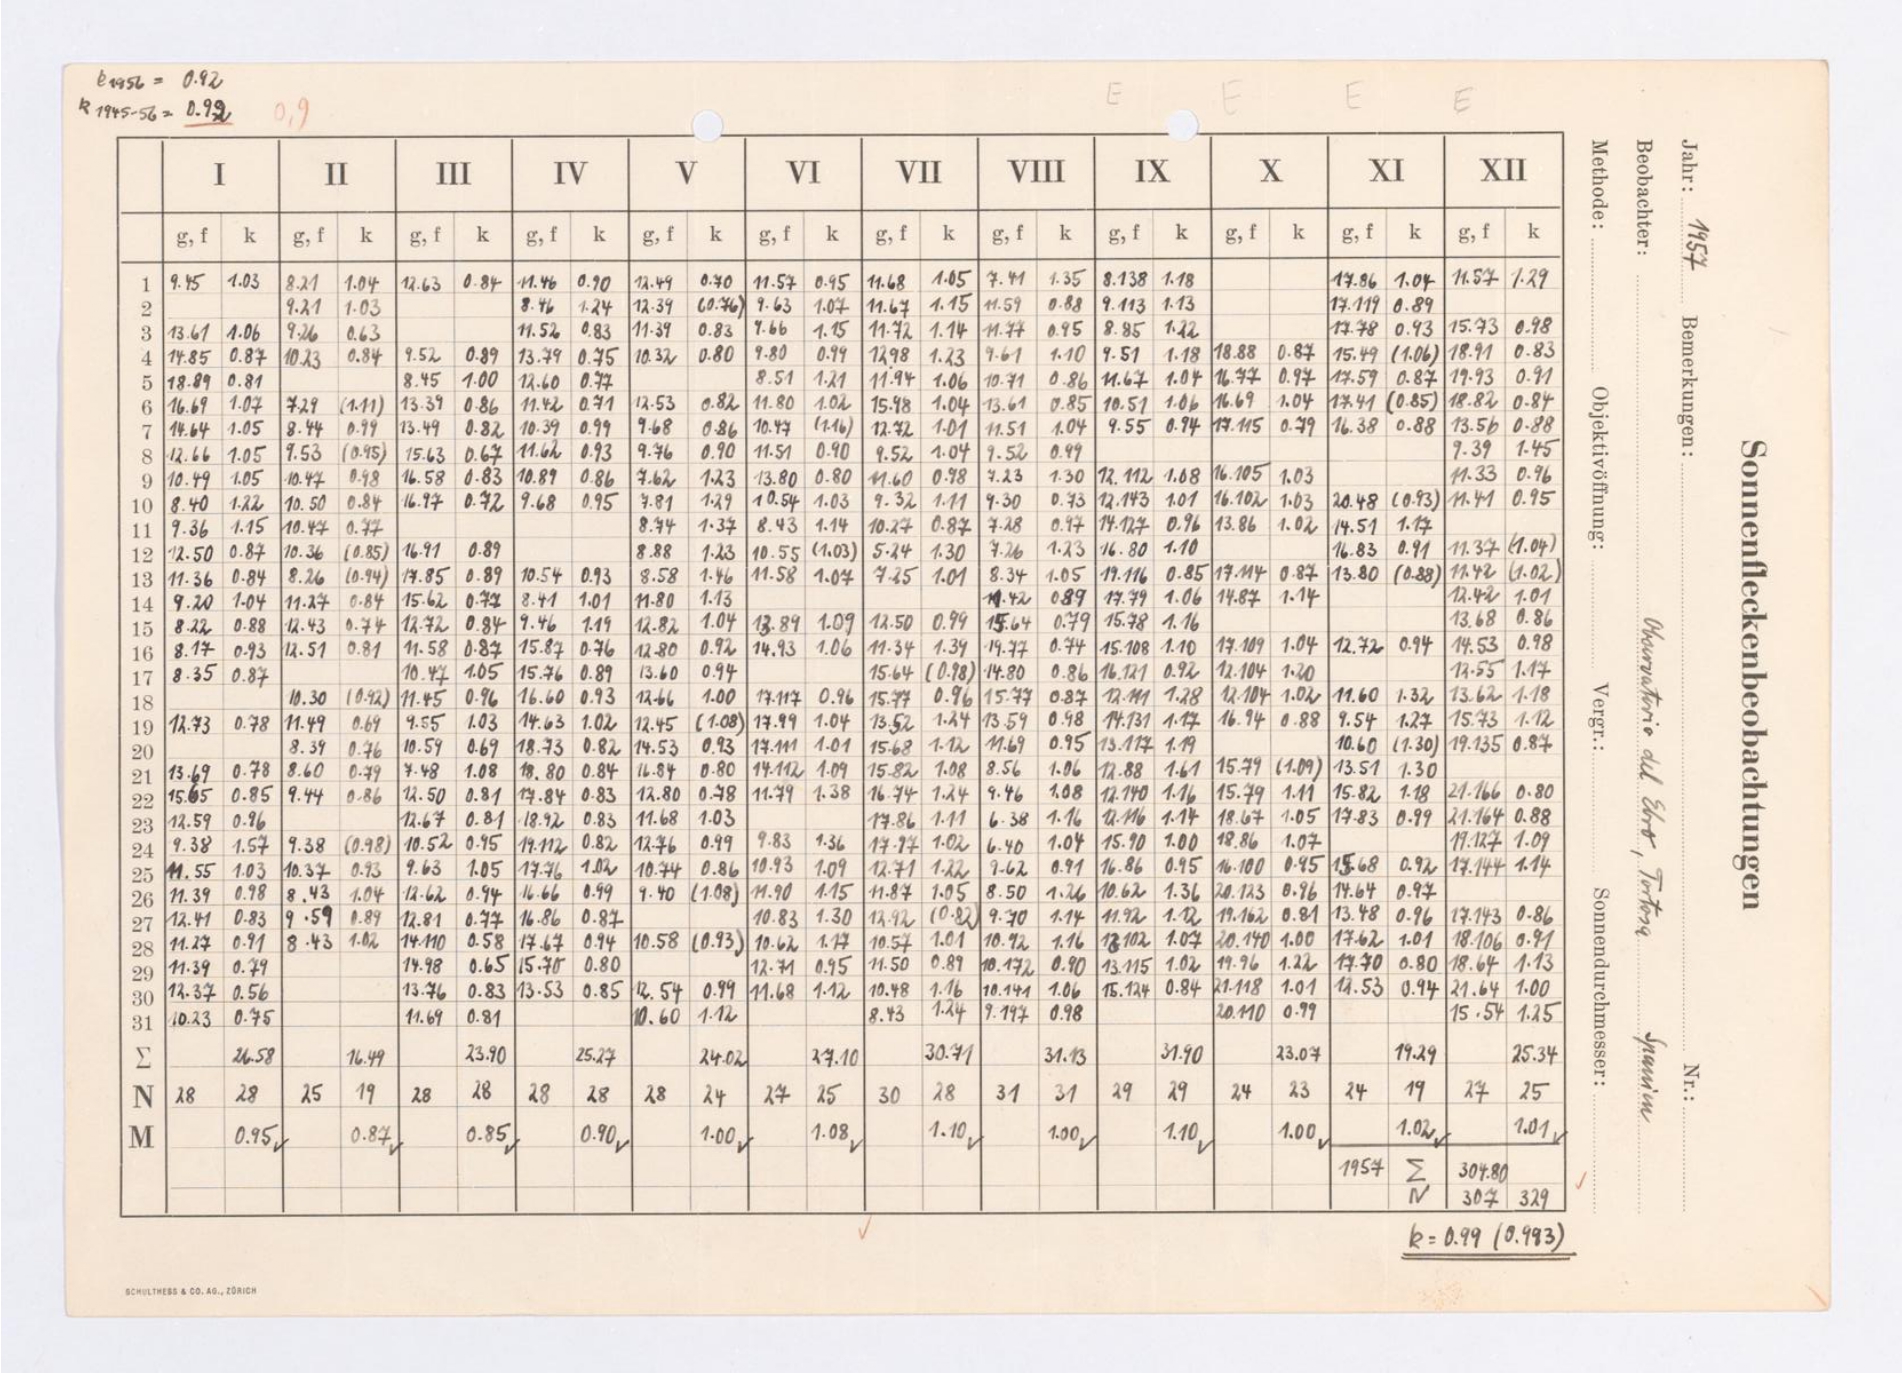 k1956 = 0.92
k 1945-56 = 0.92 0,9
E E E E
I II III IV V VI VII VIII IX X XI XII
g, f k g, f k g, f k g, f k g, f k g, f k g, f k g, f k g, f k g, f k g, f k g, f k
1 9.45 1.03 8.21 1.04 12.63 0.84 11.46 0.90 12.49 0.70 11.57 0.95 11.68 1.05 7.41 1.35 8.138 1.18 17.86 1.04 11.57 1.29
2 9.21 1.03 8.46 1.24 12.39 (0.76) 9.63 1.07 11.67 1.15 11.59 0.88 9.113 1.13 17.119 0.89
3 13.61 1.06 9.26 0.63 11.52 0.83 11.39 0.83 9.66 1.15 11.72 1.14 11.77 0.95 8.85 1.22 17.78 0.93 15.73 0.98
4 14.85 0.87 10.23 0.84 9.52 0.89 13.79 0.75 10.32 0.80 9.80 0.99 12.98 1.23 9.61 1.10 9.51 1.18 18.88 0.87 15.49 (1.06) 18.91 0.83
5 18.89 0.81 8.45 1.00 12.60 0.77 8.51 1.21 11.94 1.06 10.71 0.86 11.67 1.04 16.77 0.97 17.59 0.87 19.93 0.91
6 16.69 1.07 7.29 (1.11) 13.39 0.86 11.42 0.71 12.53 0.82 11.80 1.02 15.98 1.04 13.61 0.85 10.51 1.06 16.69 1.04 17.41 (0.85) 18.82 0.84
7 14.64 1.05 8.44 0.99 13.49 0.82 10.39 0.99 9.68 0.86 10.47 (1.16) 12.72 1.01 11.51 1.04 9.55 0.94 17.115 0.79 16.38 0.88 13.56 0.88
8 12.66 1.05 9.53 (0.95) 15.63 0.67 11.62 0.93 9.76 0.90 11.51 0.90 9.52 1.04 9.52 0.99 9.39 1.45
9 10.49 1.05 10.47 0.98 16.58 0.83 10.89 0.86 7.62 1.23 13.80 0.80 11.60 0.98 7.23 1.30 12.112 1.08 16.105 1.03 11.33 0.96
10 8.40 1.22 10.50 0.84 16.97 0.72 9.68 0.95 7.81 1.29 10.54 1.03 9.32 1.11 9.30 0.73 12.143 1.01 16.102 1.03 20.48 (0.93) 11.41 0.95
11 9.36 1.15 10.47 0.77 8.74 1.37 8.43 1.14 10.27 0.87 7.28 0.97 14.127 0.96 13.86 1.02 14.51 1.17
12 12.50 0.87 10.36 (0.85) 16.91 0.89 8.88 1.23 10.55 (1.03) 5.24 1.30 7.26 1.23 16.80 1.10 16.83 0.91 11.37 (1.04)
13 11.36 0.84 8.26 (0.94) 17.85 0.89 10.54 0.93 8.58 1.46 11.58 1.07 7.25 1.01 8.34 1.05 19.116 0.85 17.114 0.87 13.80 (0.88) 11.42 (1.02)
14 9.20 1.04 11.27 0.84 15.62 0.77 8.41 1.01 11.80 1.13 11.42 0.89 17.79 1.06 14.87 1.14 12.42 1.01
15 8.22 0.88 12.43 0.74 12.72 0.84 9.46 1.19 12.82 1.04 13.89 1.09 12.50 0.99 15.64 0.79 15.78 1.16 13.68 0.86
16 8.17 0.93 12.51 0.81 11.58 0.87 15.87 0.76 12.80 0.92 14.93 1.06 11.34 1.39 19.77 0.74 15.108 1.10 17.109 1.04 12.72 0.94 14.53 0.98
17 8.35 0.87 10.47 1.05 15.76 0.89 13.60 0.94 15.64 (0.98) 14.80 0.86 16.121 0.92 12.104 1.20 12.55 1.17
18 10.30 (0.92) 11.45 0.96 16.60 0.93 12.66 1.00 17.117 0.96 15.77 0.96 15.77 0.87 12.111 1.28 12.104 1.02 11.60 1.32 13.62 1.18
19 12.73 0.78 11.49 0.69 9.55 1.03 14.63 1.02 12.45 (1.08) 17.99 1.04 13.52 1.24 13.59 0.98 14.131 1.17 16.94 0.88 9.54 1.27 15.73 1.12
20 8.39 0.76 10.59 0.69 18.73 0.82 14.53 0.93 17.111 1.01 15.68 1.12 11.69 0.95 13.117 1.19 10.60 (1.30) 19.135 0.87
21 13.69 0.78 8.60 0.79 7.48 1.08 18.80 0.84 16.84 0.80 14.112 1.09 15.82 1.08 8.56 1.06 12.88 1.61 15.79 (1.09) 13.51 1.30
22 15.65 0.85 9.44 0.86 12.50 0.81 17.84 0.83 12.80 0.78 11.79 1.38 16.74 1.24 9.46 1.08 12.140 1.16 15.79 1.11 15.82 1.18 21.166 0.80
23 12.59 0.96 12.67 0.81 18.92 0.83 11.68 1.03 17.86 1.11 6.38 1.16 12.116 1.14 18.67 1.05 17.83 0.99 21.164 0.88
24 9.38 1.57 9.38 (0.98) 10.52 0.95 19.112 0.82 12.76 0.99 9.83 1.36 17.97 1.02 6.40 1.04 15.90 1.00 18.86 1.07 19.127 1.09
25 11.55 1.03 10.37 0.93 9.63 1.05 17.76 1.02 10.74 0.86 10.93 1.09 12.71 1.22 9.62 0.91 16.86 0.95 16.100 0.95 15.68 0.92 17.144 1.14
26 11.39 0.98 8.43 1.04 12.62 0.94 16.66 0.99 9.40 (1.08) 11.90 1.15 11.87 1.05 8.50 1.26 10.62 1.36 20.123 0.96 14.64 0.97
27 12.41 0.83 9.59 0.89 12.81 0.77 16.86 0.87 10.83 1.30 12.92 (0.82) 9.70 1.14 11.92 1.12 19.162 0.81 13.48 0.96 17.143 0.86
28 11.27 0.91 8.43 1.02 14.110 0.58 17.67 0.94 10.58 (0.93) 10.62 1.17 10.57 1.01 10.92 1.16 12.102 1.07 20.140 1.00 17.62 1.01 18.106 0.91
29 11.39 0.79 14.98 0.65 15.70 0.80 12.71 0.95 11.50 0.89 10.172 0.90 13.115 1.02 19.96 1.22 17.70 0.80 18.64 1.13
30 12.37 0.56 13.76 0.83 13.53 0.85 12.54 0.99 11.68 1.12 10.48 1.16 10.141 1.06 15.124 0.84 21.118 1.01 12.53 0.94 21.64 1.00
31 10.23 0.75 11.69 0.81 10.60 1.12 8.43 1.24 9.197 0.98 20.110 0.99 15.54 1.25
Σ 26.58 16.49 23.90 25.27 24.02 27.10 30.71 31.13 31.90 23.07 19.29 25.34
N 28 28 25 19 28 28 28 28 28 24 27 25 30 28 31 31 29 29 24 23 24 19 27 25
M 0.95 0.87 0.85 0.90 1.00 1.08 1.10 1.00 1.10 1.00 1.02 1.01
1957 Σ 304.80
N 307 329
k = 0.99 (0.993)
SCHULTHESS & CO. AG., ZÜRICH
Sonnenfleckenbeobachtungen
Jahr: 1957 Bemerkungen: Nr.:
Beobachter: Observatorio del Ebro, Tortosa Spanien
Methode: Objektivöffnung: Vergr.: Sonnendurchmesser: